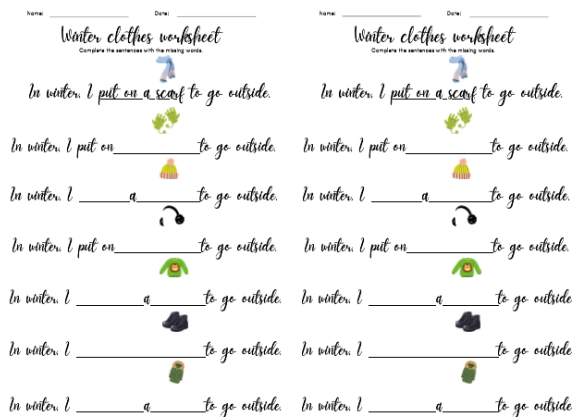 Name: ____________ Date: ____________
Winter clothes worksheet
Complete the sentences with the missing words.
In winter, I put on a scarf to go outside.
In winter, I put on____________to go outside.
In winter, I ________a__________to go outside.
In winter, I put on____________to go outside.
In winter, I __________a________to go outside.
In winter, I ____________________to go outside.
In winter, I __________a________to go outside.
Name: ____________ Date: ____________
Winter clothes worksheet
Complete the sentences with the missing words.
In winter, I put on a scarf to go outside.
In winter, I put on____________to go outside.
In winter, I ________a__________to go outside.
In winter, I put on____________to go outside.
In winter, I __________a________to go outside
In winter, I ____________________to go outside
In winter, I __________a________to go outside